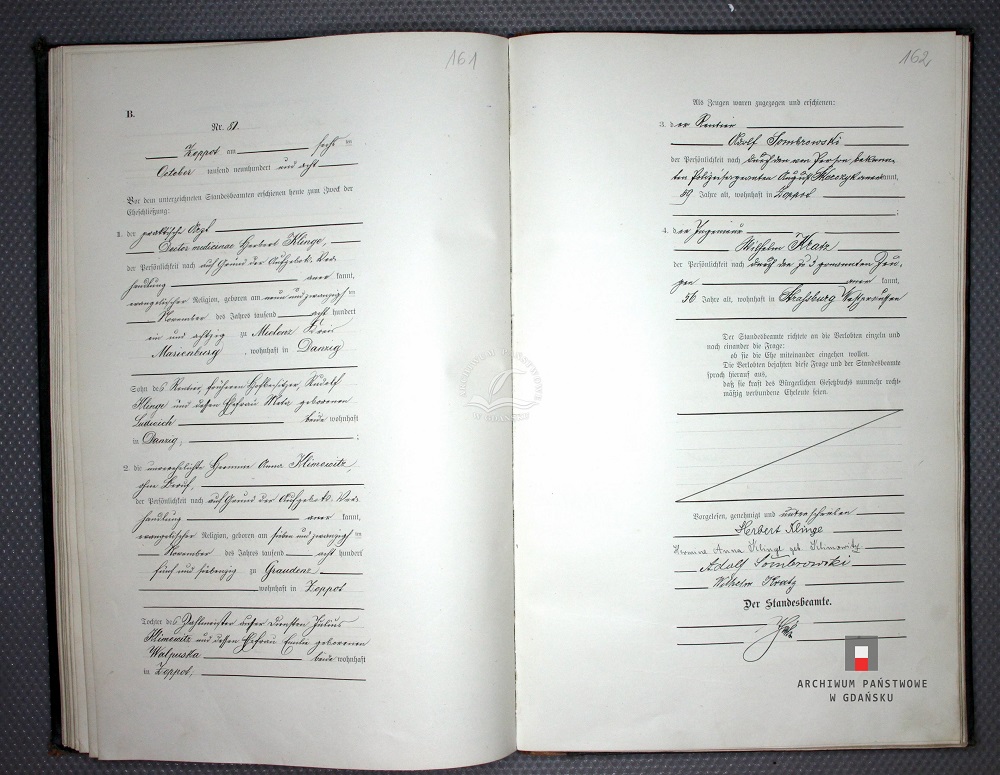 161
B.
Nr. 81.
Zoppot am sechs ten
October tausend neunhundert und acht
Vor dem unterzeichneten Standesbeamten erschienen heute zum Zweck der
Eheschließung:
1. der praktische Arzt
Doctor medicinae Herbert Klinge,
der Persönlichkeit nach auf Grund der Aufgebots-Ver-
handlung aner kannt,
evangelischer Religion, geboren am neun und zwanzigsten
November des Jahres tausend acht hundert
ein und achtzig zu Kreis
Marienburg, wohnhaft in Danzig
Sohn des Rentier, früheren Hofbesitzer, Rudolf
Klinge und dessen Ehefrau Meta geborenen
beide wohnhaft
in Danzig;
2. die unverehelichte Hermine Anna Klimowitz,
ohne Beruf,
der Persönlichkeit nach auf Grund der Aufgebots-Ver-
handlung aner kannt,
evangelischer Religion, geboren am sieben und zwanzigsten
November des Jahres tausend acht hundert
fünf und siebenzig zu Graudenz
wohnhaft in Zoppot
Tochter des Zahlmeister außer Diensten Julius
Klimowitz und dessen Ehefrau Emilie geborenen
Walpuska beide wohnhaft
in Zoppot,
162
Als Zeugen waren zugezogen und erschienen:
3. der Rentier
Adolf Sombrowski
der Persönlichkeit nach durch den von Person bekann-
ten Polizeisergeanten August anerkannt,
59 Jahre alt, wohnhaft in Zoppot
;
4. der Ingenieur
Wilhelm Kratz
der Persönlichkeit nach durch den zu 3 genannten Zeu-
gen aner kannt,
56 Jahre alt, wohnhaft in Straßburg Westpreußen
Der Standesbeamte richtete an die Verlobten einzeln und
nach einander die Frage:
ob sie die Ehe miteinander eingehen wollen.
Die Verlobten bejahten diese Frage und der Standesbeamte
sprach hierauf aus,
daß sie kraft des Bürgerlichen Gesetzbuchs nunmehr recht-
mäßig verbundene Eheleute seien.
Vorgelesen, genehmigt und unterschrieben
Herbert Klinge
Hermine Anna Klinge geb. Klimowitz
Adolf Sombrowski
Wilhelm Kratz
Der Standesbeamte.
ARCHIWUM PAŃSTWOWE
W GDAŃSKU